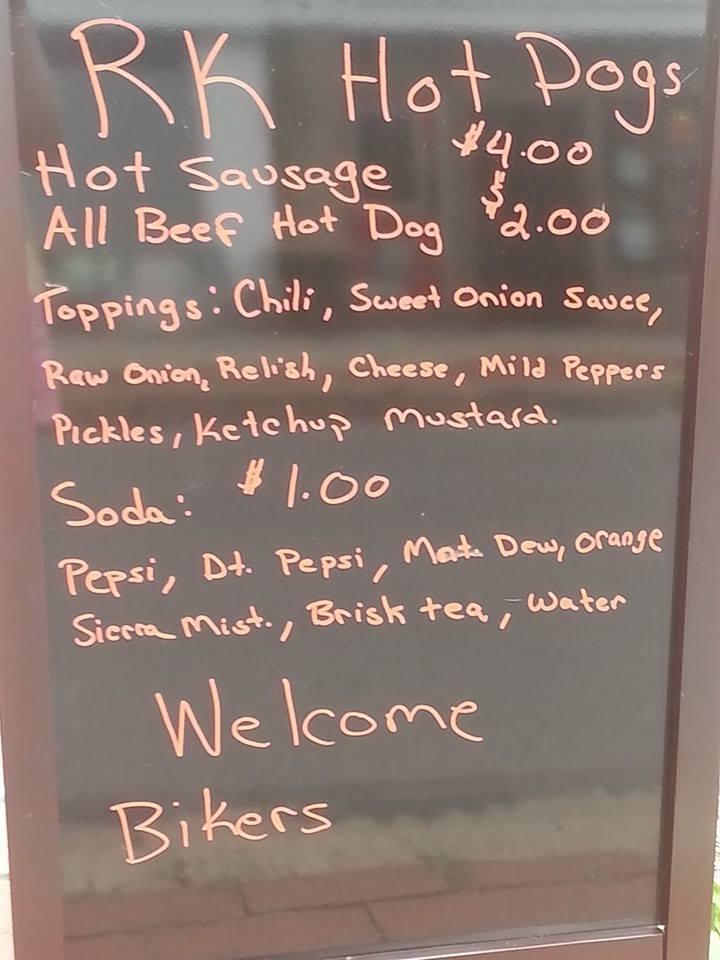 RK Hot Dogs
Hot Sausage $4.00
All Beef Hot Dog $2.00
Toppings: Chili, Sweet Onion Sauce,
Raw Onion, Relish, Cheese, Mild Peppers
Pickles, Ketchup Mustard.
Soda: $1.00
Pepsi, Dt. Pepsi, Mnt. Dew, Orange
Sierra Mist., Brisk tea, Water
Welcome
Bikers